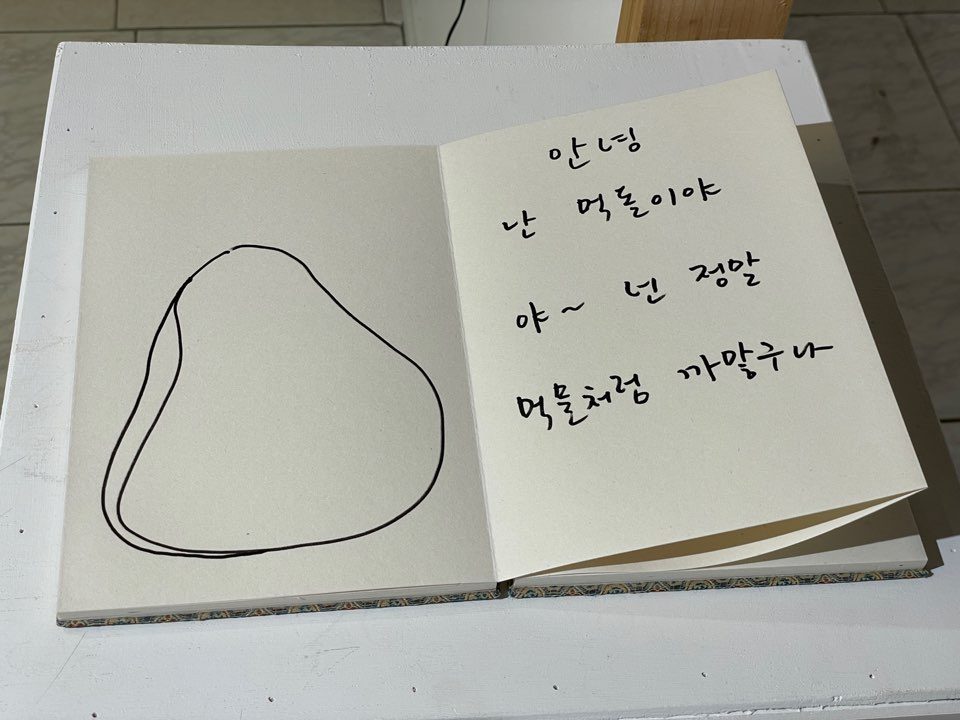 안녕
난 먹돌이야
야~ 넌 정말
먹물처럼 까맣구나